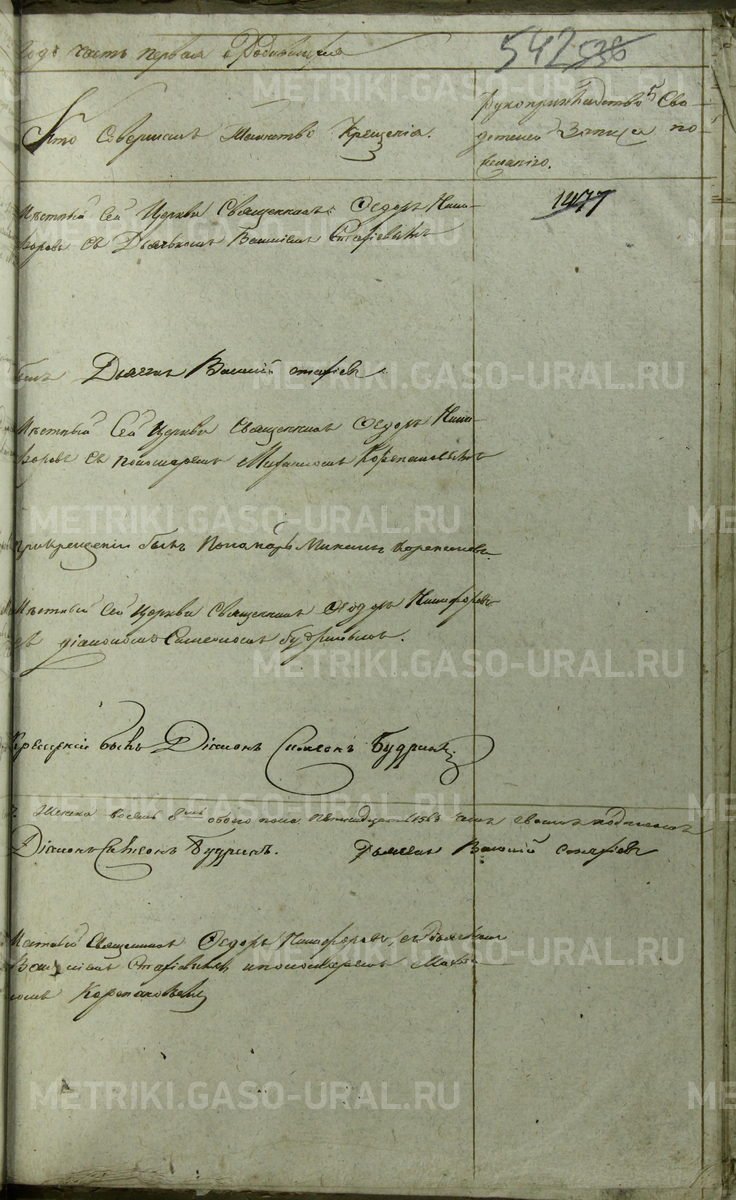 года часть первая о Родившихся
542 538
Кто Совершалъ Таинство Крещенія.
Рукоприкладство Сви-
детелей Записи по
желанію.
1477
Местный Сей Церкви Священникъ Федоръ Ники-
форовъ съ Дьячкомъ Василіемъ
былъ Дьячекъ Василій
Местный Сей Церкви Священникъ Федоръ Ники-
форовъ съ пономаремъ Михаиломъ Корепановымъ
При Крещеніи былъ Пономарь Михаилъ Корепановъ
Местный Сей Церкви Священникъ Федоръ Никифоровъ
съ діакономъ Симеономъ Будринымъ.
Крещеніи былъ Діаконъ Симеонъ Будринъ
Женска восемь 8мь обоего пола пятнадцать 15
Діаконъ Симеонъ Будринъ. Дьячекъ Василій
Местный Священникъ Федоръ Никифоровъ съ дьячкомъ
Василіемъ и пономаремъ Михаи-
ломъ Корепановымъ
METRIKI.GASO-URAL.RU